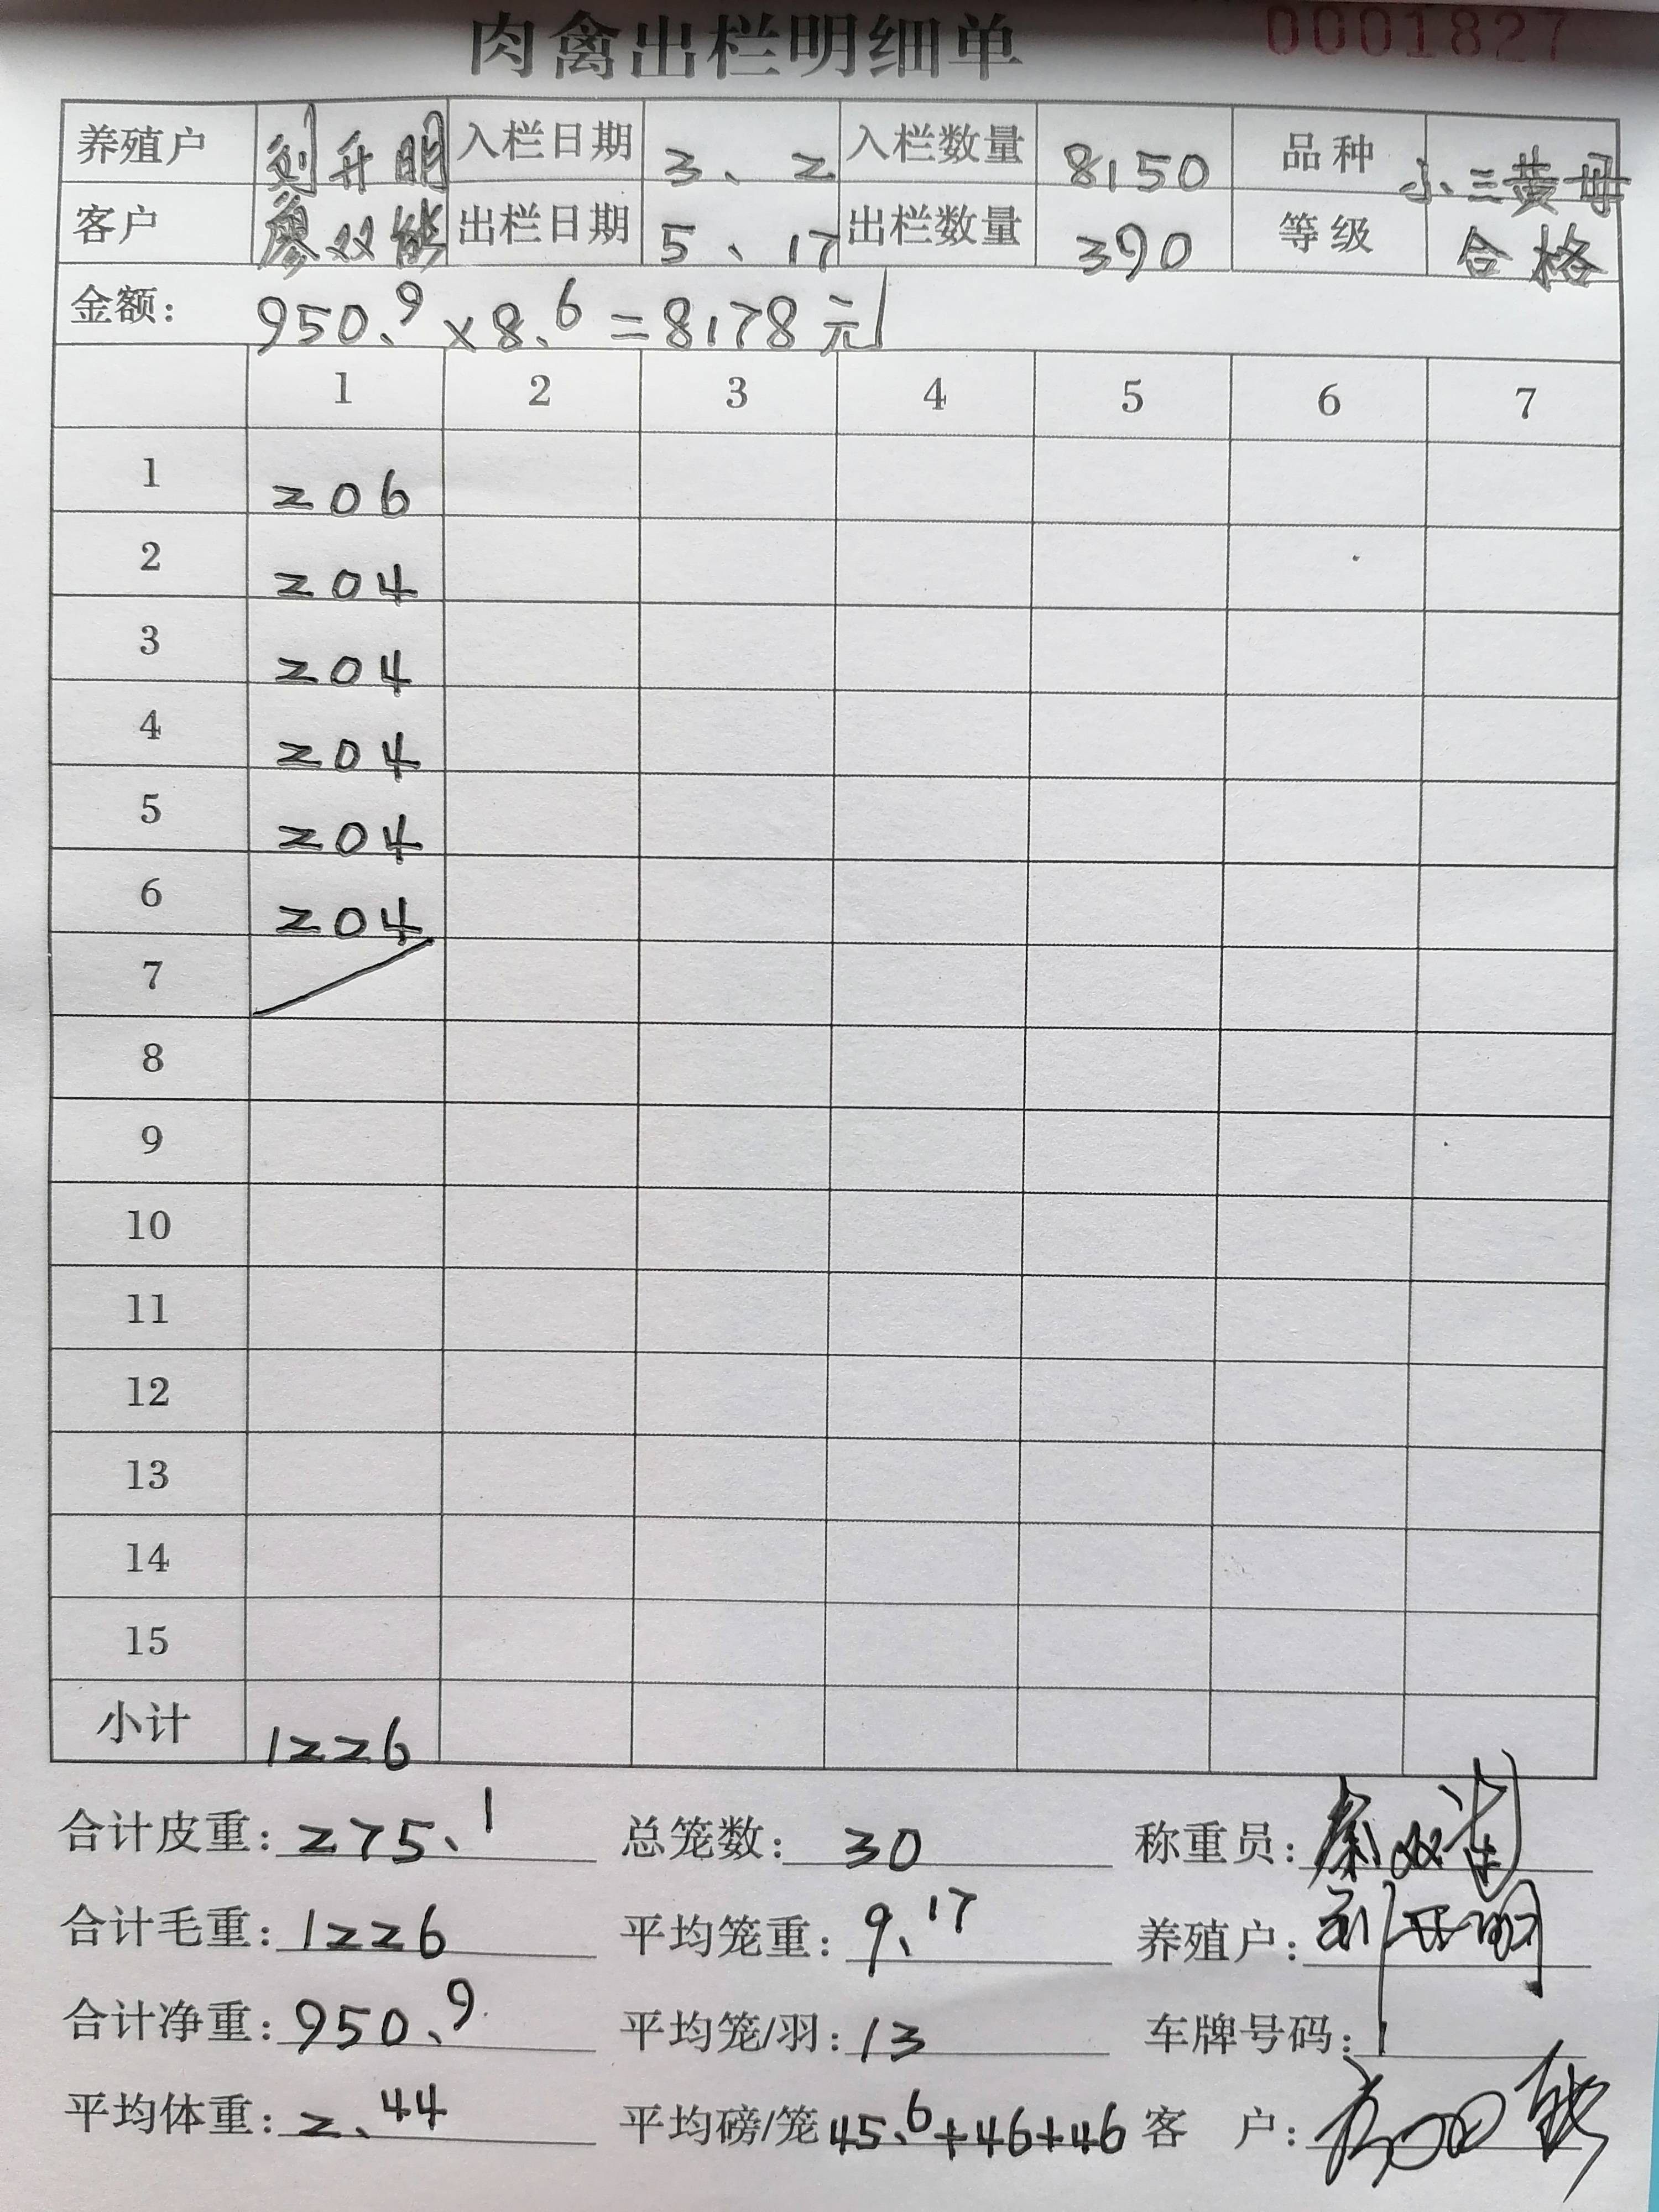 肉禽出栏明细单 0001827
养殖户 刘升明 入栏日期 3、2 入栏数量 8150 品种 小三黄母
客户 廖双能 出栏日期 5、17 出栏数量 390 等级 合格
金额: 950、9×8、6=8178元
1 2 3 4 5 6 7
1 206
2 204
3 204
4 204
5 204
6 204
7
8
9
10
11
12
13
14
15
小计 1226
合计皮重: 275、1 总笼数: 30 称重员:
合计毛重: 1226 平均笼重: 9、17 养殖户:
合计净重: 950、9 平均笼/羽: 13 车牌号码:
平均体重: 2、44 平均磅/笼 45、6+46+46 客 户: